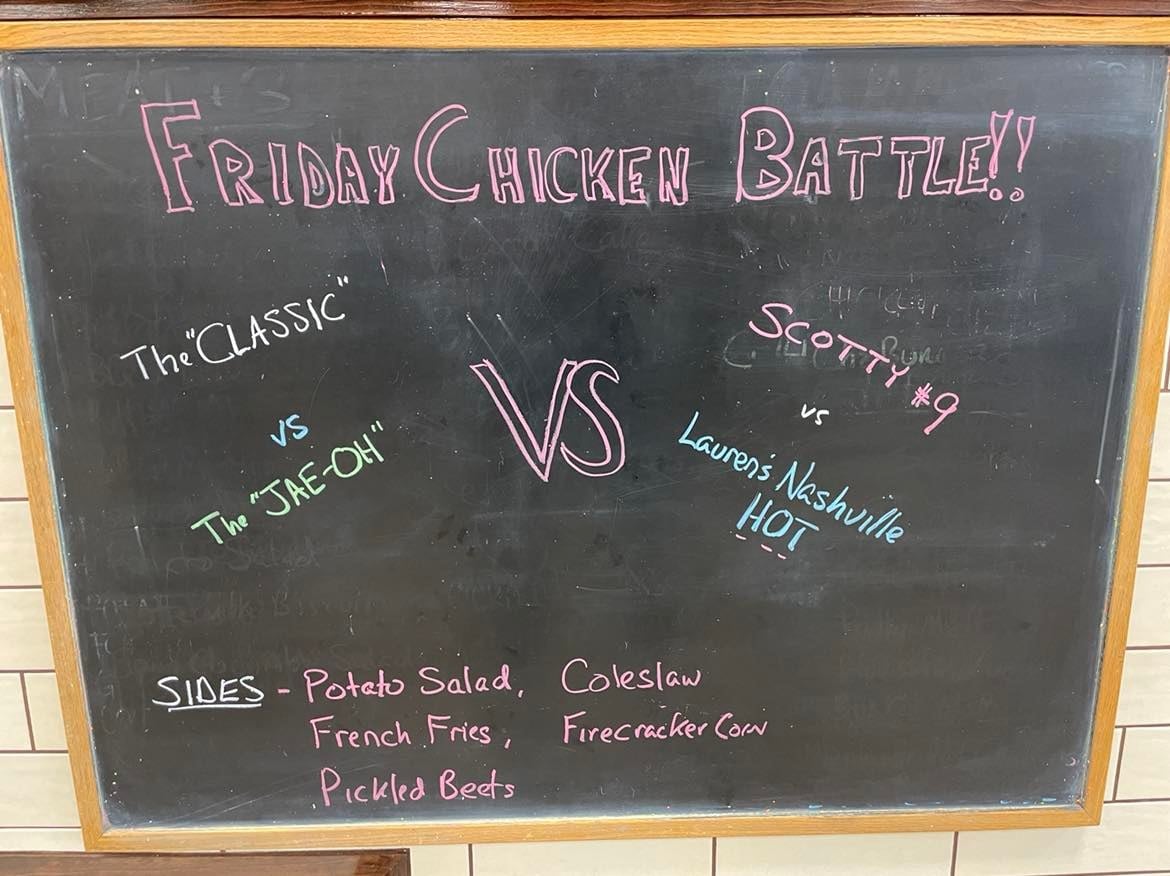 FRIDAY CHICKEN BATTLE!!
The "CLASSIC"
vs
The "JAE-OH"
VS
SCOTTY #9
vs
Lauren's Nashville
HOT
SIDES - Potato Salad, Coleslaw
French Fries, Firecracker Corn
Pickled Beets